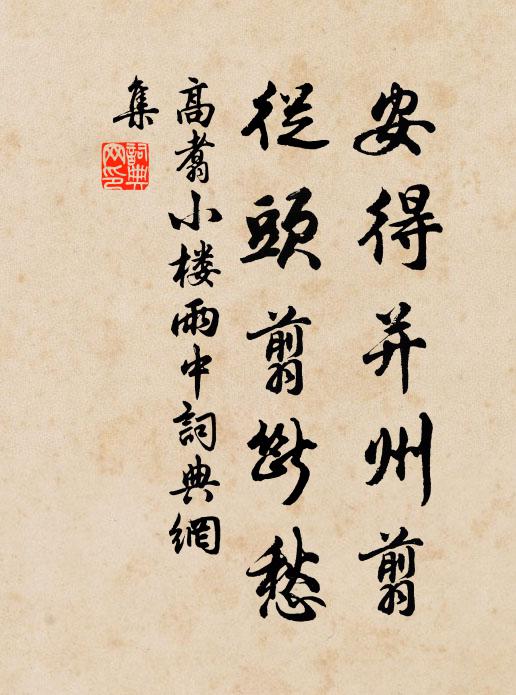 安得并州翦
從頭翦斷愁
高翥小楼雨中詞典網
集
詞典網印